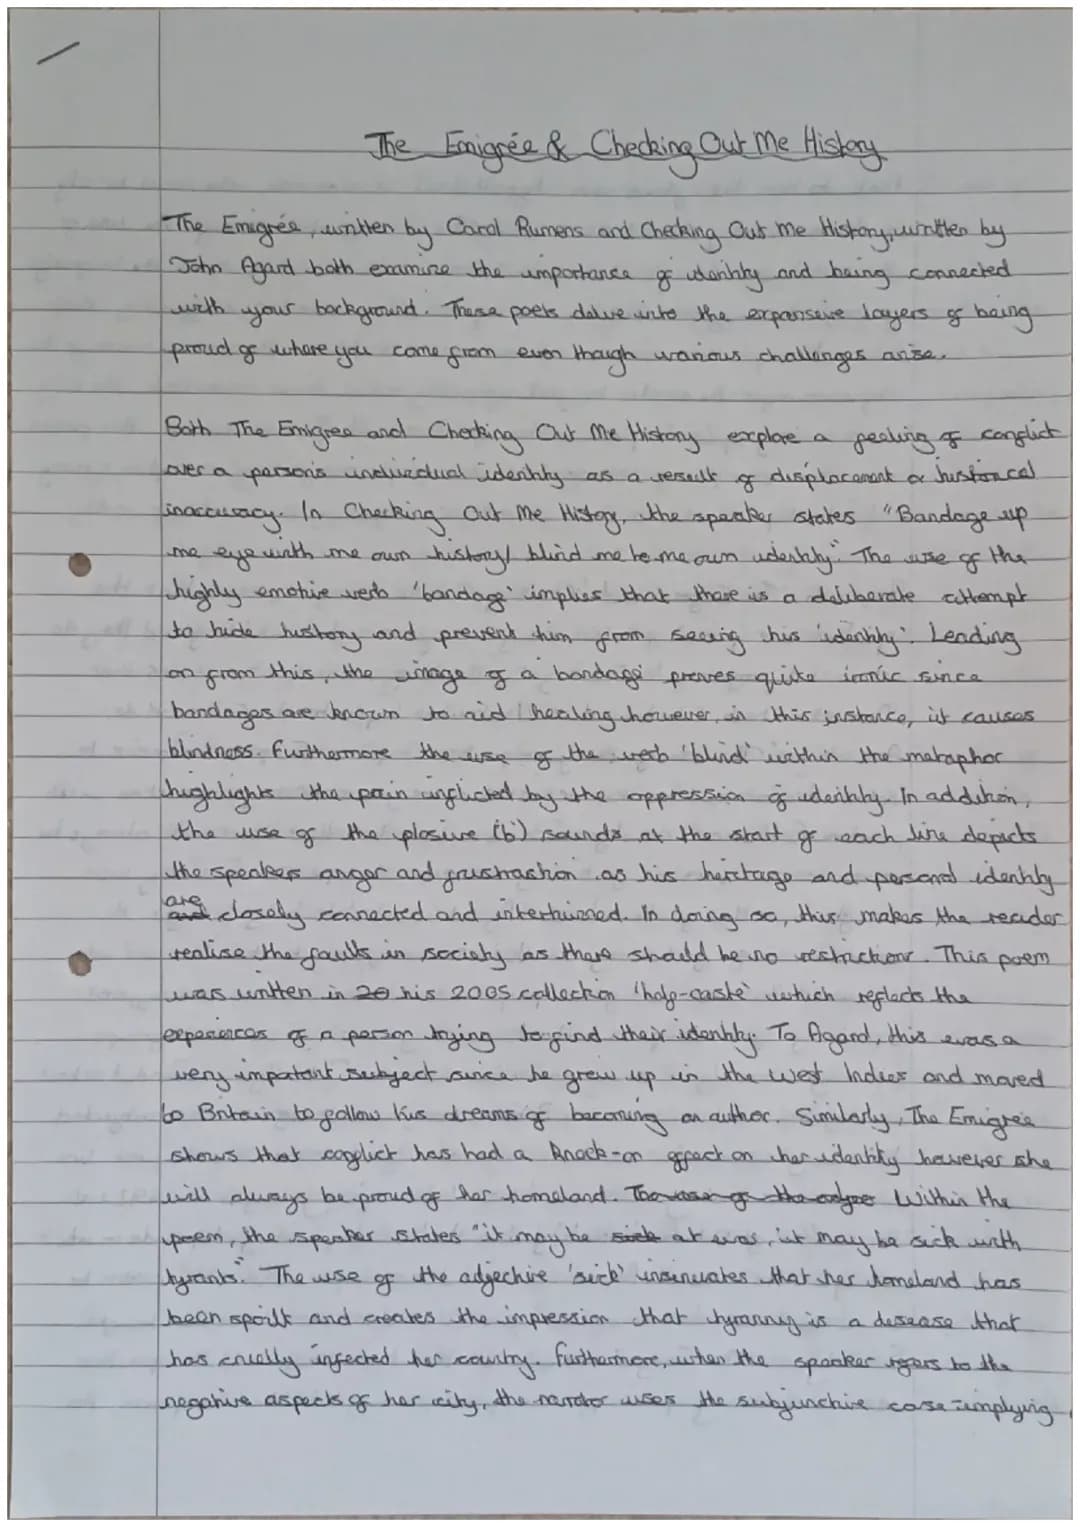 The Emigrée & Checking Out Me History
The Emigrée, written by Carol Rumens and Checking Out Me History, written by
John Agard both examine the importance of identity and being connected
with your background. These poets delve into the expansive layers of being
proud of where you come from even though various challenges arise.
Both The Emigree and Checking Out Me History explore a feeling of conflict
over a person's individual identity as a result of displacement or historical
inaccuracy. In Checking Out Me History, the speaker states "Bandage up
me eye with me own history/ blind me to me own identity." The use of the
highly emotive verb 'bandage' implies that there is a deliberate attempt
to hide history and prevent him from seeing his 'identity'. Leading
on from this, the image of a 'bandage' proves quite ironic since
bandages are known to aid healing however, in this instance, it causes
blindness. Furthermore the use of the verb 'blind' within the metaphor
highlights the pain inflicted by the oppression of identity. In addition,
the use of the plosive (b') sounds at the start of each line depicts
the speakers anger and frustrashion as his heritage and personal identity
are
and closely connected and intertwined. In doing so, this makes the reader
realise the faults in society as there should be no restrictions. This poem
was written in 20 his 2005 collection 'half-caste' which reflects the
experiences of a person trying to find their identity. To Agard, this was a
very important subject since he grew up in the West Indies and moved
to Britain to follow his dreams of becoming an author. Similarly, The Emigrée
shows that conflict has had a knock-on effect on her identity however she
will always be proud of her homeland. The use of the Within the
poem, the speaker states "it may be sick at war, it may be sick with
tyrants." The use of the adjective 'sick' insinuates that her homeland has
been spoilt and creates the impression that tyranny is a desease that
has cruelly infected her country. Furthermore, when the speaker refers to the
negative aspects of her city, the narrator uses the subjunctive case implying